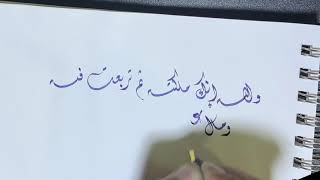 والله إنك ملكته ثم تربعت فيه
ومالي